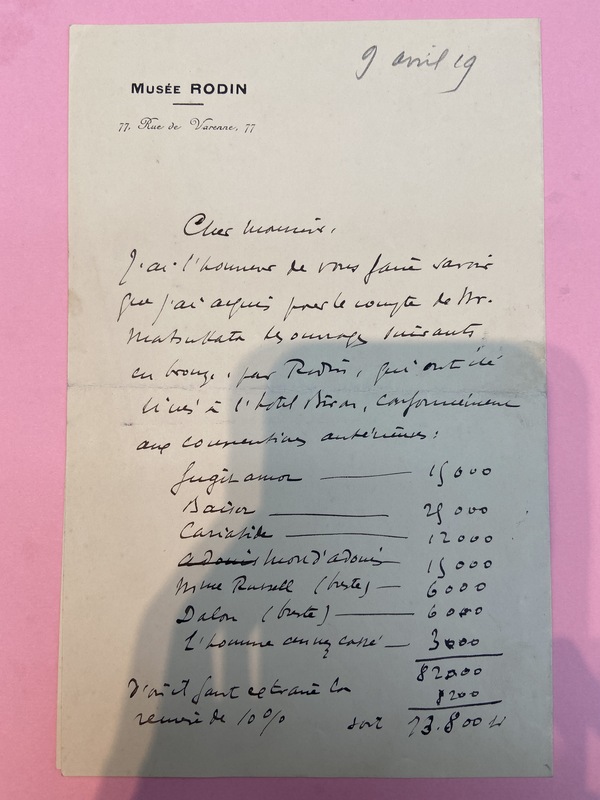 9 avril 19
MUSÉE RODIN
77, Rue de Varenne, 77
Cher Monsieur,
J'ai l'honneur de vous faire savoir
que j'ai acquis pour le compte de Mr.
Matsukata les ouvrages suivants
en bronze, par Rodin, qui ont été
livrés à l'hôtel Biron, conformément
aux conventions antérieures :
Fugit amor — 15000
Baiser — 25000
Cariatide — 12000
adonis mort d'adonis — 15000
Mme Russell (buste) — 6000
Dalou (buste) — 6000
L'homme au nez cassé — 3000
82000
D'où il faut extraire la
8200
remise de 10% soit 73.800 fr